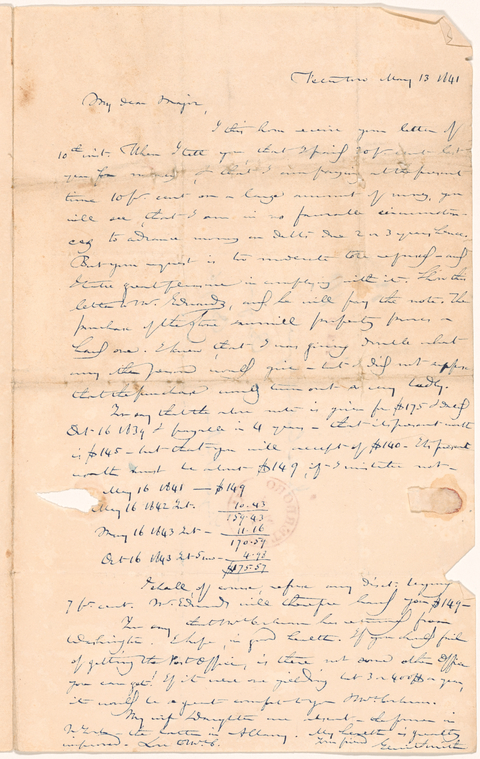 Peterboro May 13 1841
My dear Major,
I this hour receive your letter of
10th inst. When I tell you, that I paid 20 pr cent last
year for money, & that I am paying at the present
time 10 pr. cent on a large amount of money, you
will see, that I am in no favorable circumstan-
ces to advance money on debts due 2 or 3 years hence.
But your request is too moderate to be refused - and
I take great pleasure in complying with it. Show this
letter to Mr. Edwards, and he will pay the note. The
purchase of the sawmill property proves a
hard one. I knew, that I was giving double what
any other person would give - but I did not suppose
that the purchase would turn out so very badly.
You say that the above note is given for $175 & dated
Oct. 16 1839 & payable in 4 years - that its present worth
is $145 - but that you will accept of $140 - Its present
worth must be about $149, if I mistake not -
May 16 1841 — $149
May 16 1842 Int. 10.43
159.43
May 16 1843 Int - 11.16
170.59
Oct 16 1843 Int 5 mo - 4.98
$175.57
I shall, of course, refuse any disct. beyond
7 pr cent. Mr. Edwards will therefore hand you $149 -
You say that Mr Cochran has returned from
Washington. I hope, in good health. If you should fail
of getting the Post Office, is there not some other Office
you can get? If it were one yielding but 3 or 400$ a year,
it would be a great comfort to you & Mrs Cochran.
My wife & daughter are absent - the former in
N. York - the latter in Albany. My health is greatly
improved.
Your friend Gerrit Smith